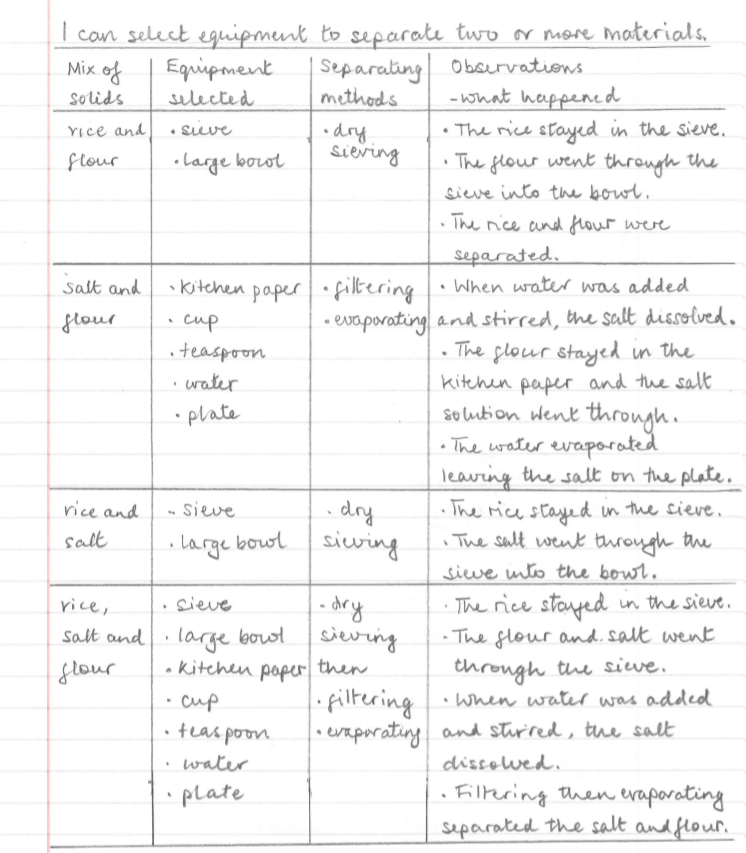 I can select equipment to separate two or more materials.
Mix of solids | Equipment selected | Separating methods | Observations - what happened
rice and flour
• sieve
• large bowl
• dry
sieving
• The rice stayed in the sieve.
• The flour went through the
sieve into the bowl.
• The rice and flour were
separated.
salt and
flour
• kitchen paper
• cup
• teaspoon
• water
• plate
• filtering
• evaporating
• When water was added
and stirred, the salt dissolved.
• The flour stayed in the
kitchen paper and the salt
solution went through.
• The water evaporated
leaving the salt on the plate.
rice and
salt
• sieve
• large bowl
• dry
sieving
• The rice stayed in the sieve.
• The salt went through the
sieve into the bowl.
rice,
salt and
flour
• sieve
• large bowl
• kitchen paper
• cup
• teaspoon
• water
• plate
• dry
sieving
then
• filtering
• evaporating
• The rice stayed in the sieve.
• The flour and salt went
through the sieve.
• When water was added
and stirred, the salt
dissolved.
• Filtering then evaporating
separated the salt and flour.